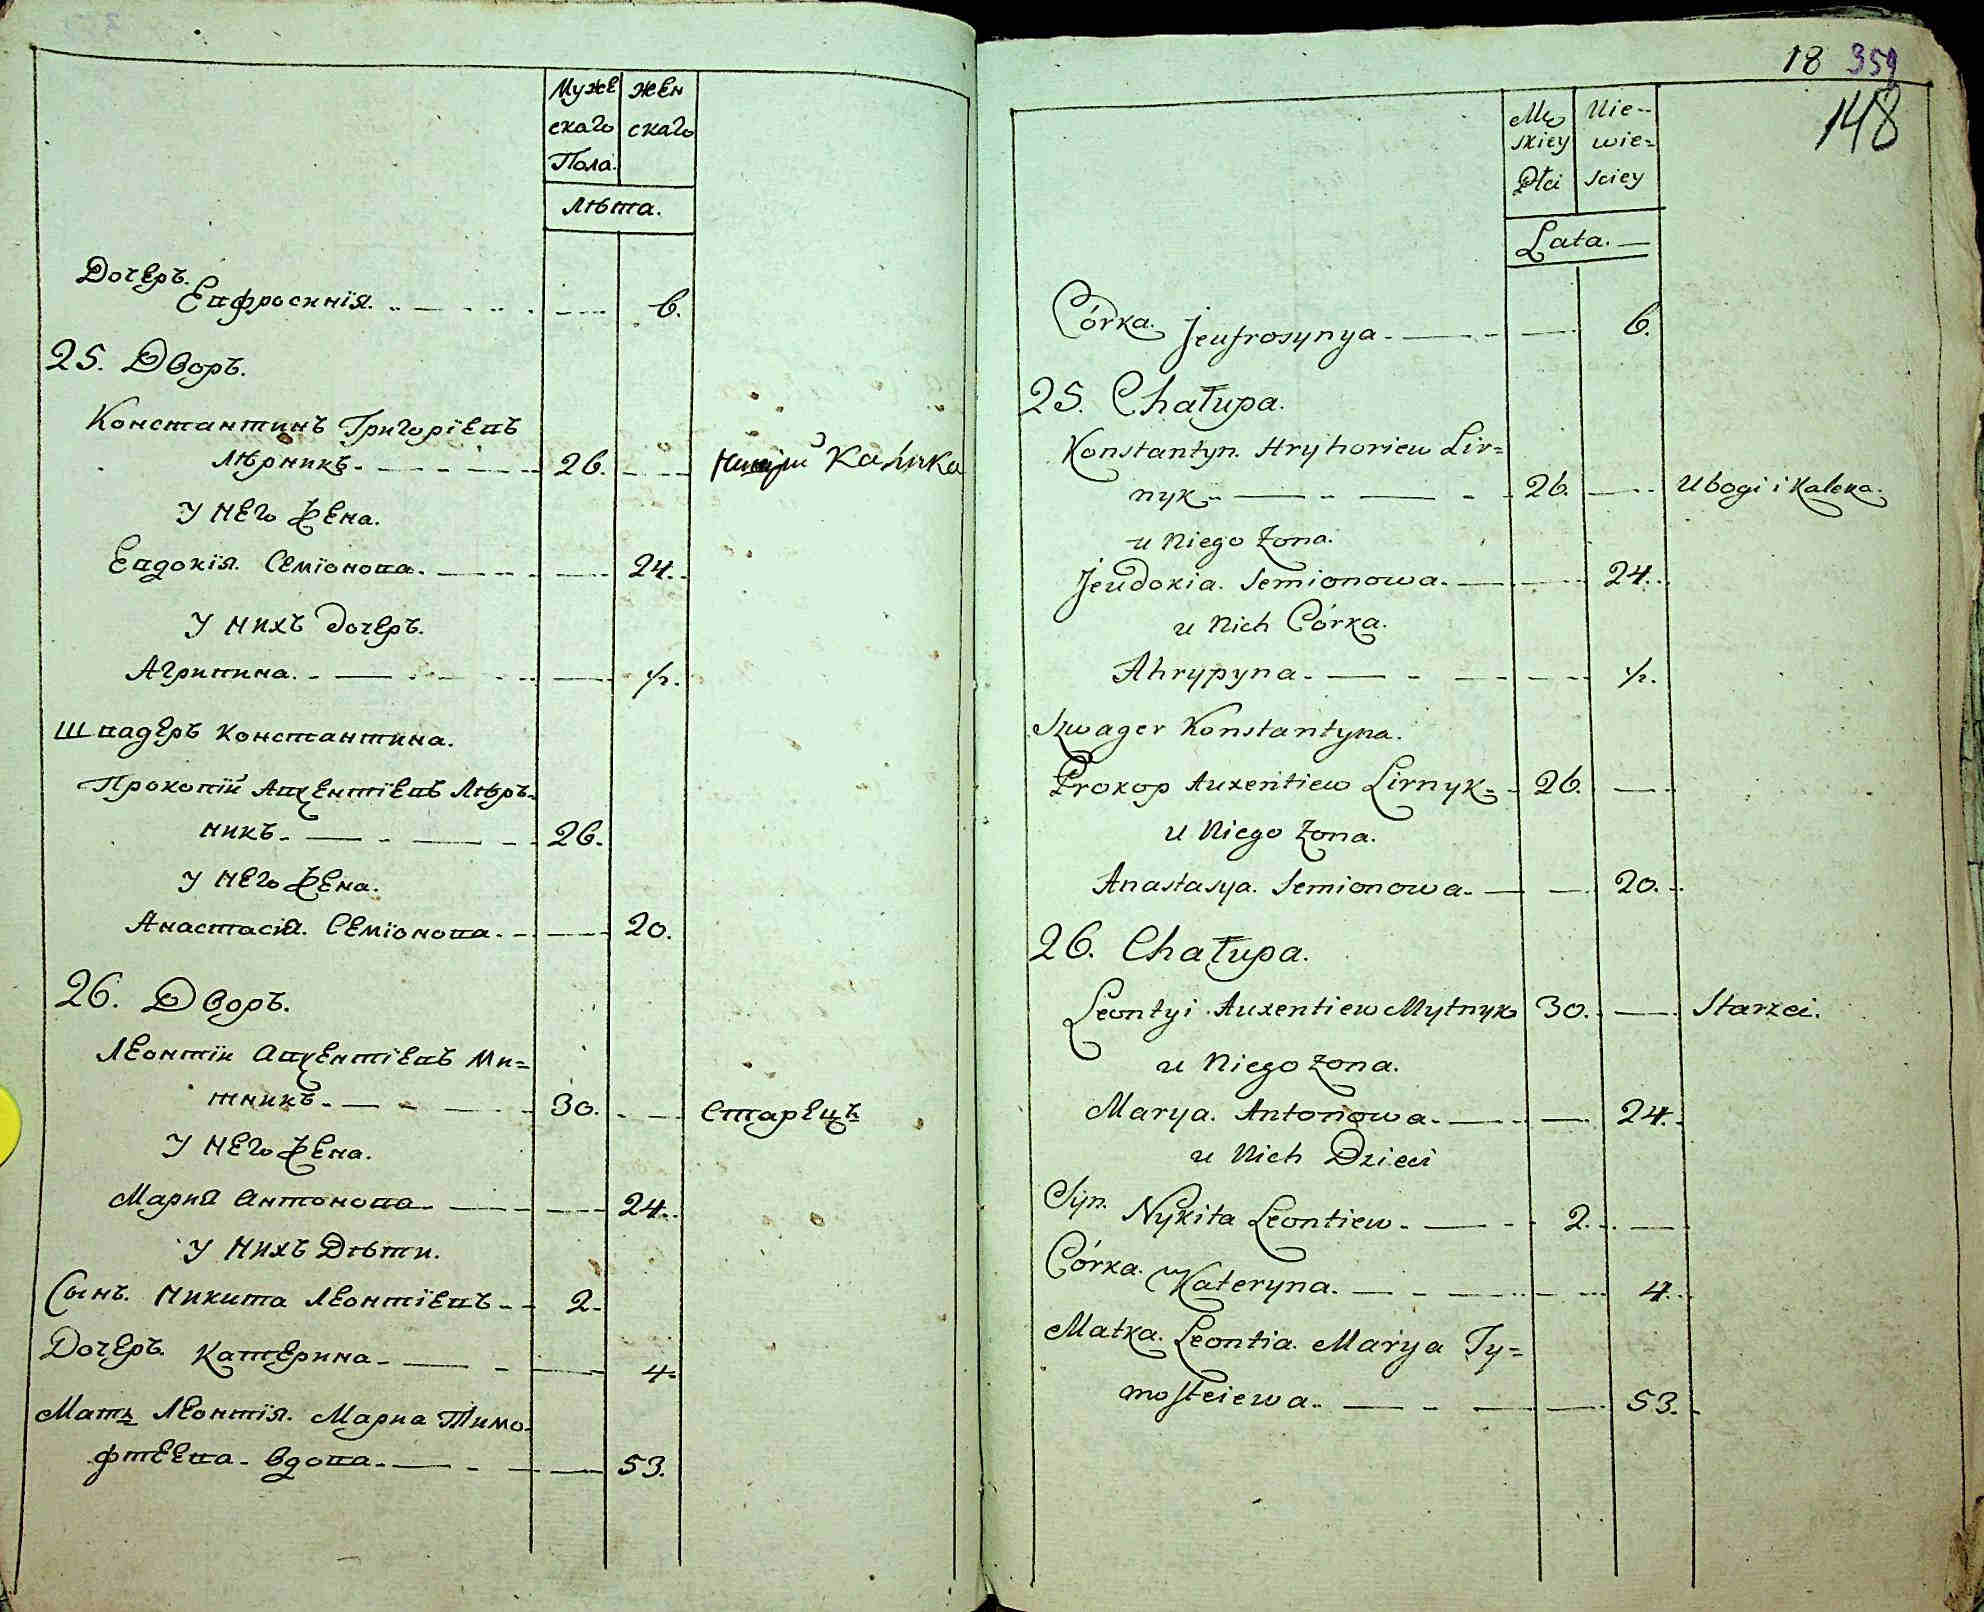 Муже
скаго
Пола.
жен
скаго
Лѣта.
Дочеръ.
Евфросинїя. 6.
25. Дворъ.
Константинъ Григорїевъ
Лѣрникъ. 26. нищий Калика
У него жена.
Евдокїя. Семїонова. 24.
У нихъ дочеръ.
Агрипина. ½.
Швагеръ Константина.
Прокопїй Авxентїевъ Лѣръ-
никъ. 26.
У него жена.
Анастасия. Семїонова. 20.
26. Дворъ.
Леонтїи Авxентїевъ Ми=
тникъ. 30. Старецъ
У него жена.
Мария Антонова 24.
У нихъ Дѣти.
Сынъ. Никита Леонтїевъ 2.
Дочеръ. Катерина 4.
Мать Леонтїя. Мариа Тимо-
фтеева. вдова. 53.
18 359
148
Mę
skiey
Płci
Nie-
wie=
sciey
Lata.
Córka. Jeufrosynya 6.
25. Chałupa.
Konstantyn. Hryhoriew Lir=
nyk 26. Ubogi i Kaleka.
u Niego Zona.
Jeudokia. Semionowa. 24.
u Nich Córka.
Ahrypyna. ½.
Szwager Konstantyna.
Prokop Auxentiew Lirnyk. 26.
u Niego Zona.
Anastasya. Semionowa. 20.
26. Chałupa.
Leontyi Auxentiew Mytnyk 30. Starzei.
u Niego Zona.
Marya. Antonowa. 24.
u Nich Dzieci
Syn. Nykita Leontiew. 2.
Córka. Kateryna. 4.
Matka. Leontia. Marya Ty=
mofteiewa. 53.